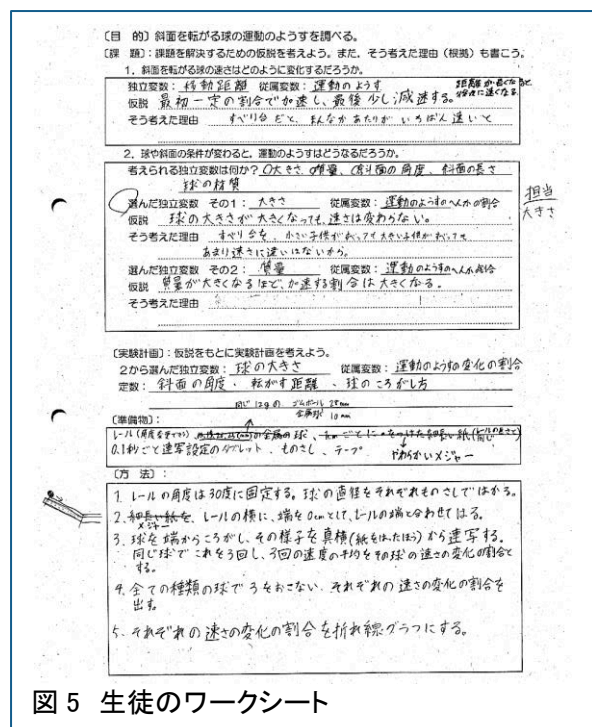 〔目 的〕斜面を転がる球の運動のようすを調べる。
〔課 題〕:課題を解決するための仮説を考えよう。また、そう考えた理由(根拠)も書こう。
1.斜面を転がる球の速さはどのように変化するだろうか。
独立変数:移動距離 従属変数:運動のようす
仮説 最初一定の割合で加速し、最後少し減速する。
そう考えた理由 すべり台だと、まんなかあたりがいちばん速いと
2.球や斜面の条件が変わると、運動のようすはどうなるだろうか。
考えられる独立変数は何か?大きさ、質量、斜面の角度、斜面の長さ
球の材質
選んだ独立変数 その1:大きさ 従属変数:運動のようすの の割合
仮説 球の大きさが大きくなっても、速さは変わらない。
そう考えた理由 すべり台を、小さい子供がすべっても大きい子供がすべっても
あまり速さに違いはないから。
担当
大きさ
選んだ独立変数 その2:質量 従属変数:運動のようすの
仮説 質量が大きくなるほど、加速する割合は大きくなる。
そう考えた理由
〔実験計画〕:仮説をもとに実験計画を考えよう。
2から選んだ独立変数:球の大きさ 従属変数:運動のようすの変化の割合
定数:斜面の角度・転がす距離・球のころがし方
同じ12gの ゴムボール 28mm
金属球 10mm
〔準備物〕:
レール の金属の球、 つけた細長い紙
0.1秒ごと連写設定のタブレット、ものさし、テープ やわらかいメジャー
〔方 法〕:
1. レールの角度は30度に固定する。球の直径をそれぞれものさしではかる。
2. 細長い紙を、レールの横に、端を0cmとして、レールの端と合わせてはる。
メジャー
3. 球を端からころがし、その様子を真横(紙をはったほう)から連写する。
同じ球でこれを3回し、3回の速度の平均をその球の速さの変化の割合と
する。
4. 全ての種類の球で3をおこない、それぞれの速さの変化の割合を
出す。
5. それぞれの速さの変化の割合を折れ線グラフにする。
図5 生徒のワークシート